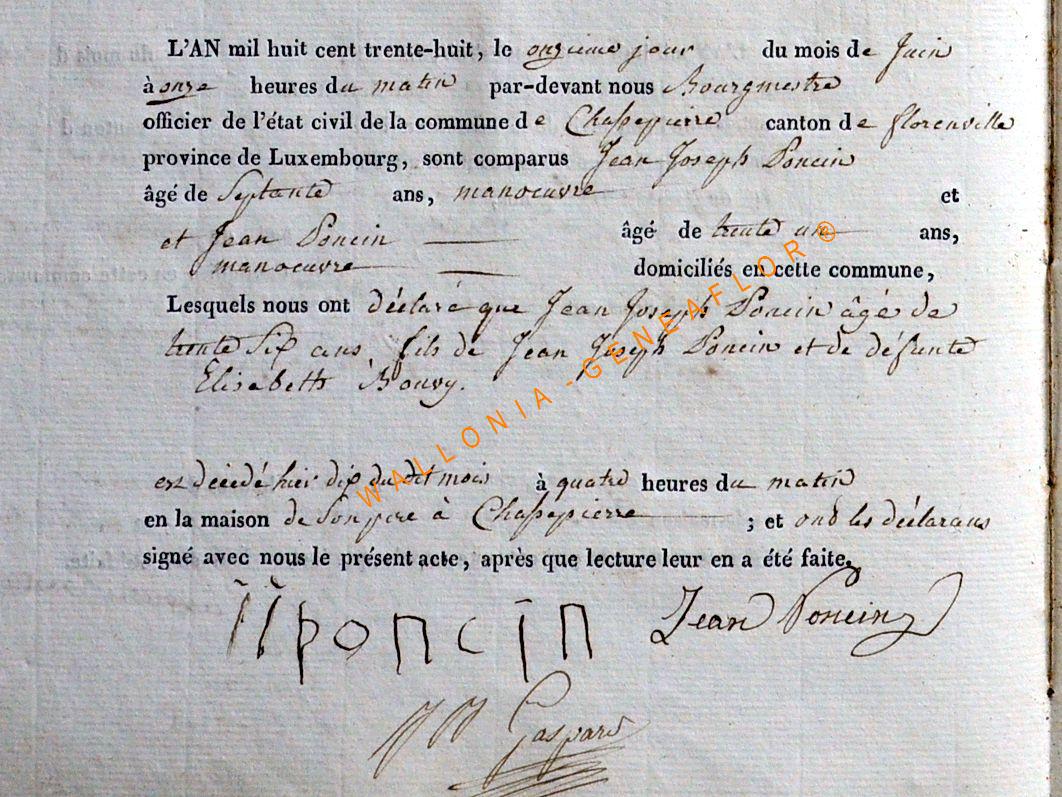 L'AN mil huit cent trente-huit, le onzieme jour du mois de Juin
à onze heures du matin par-devant nous Bourgmestre
officier de l'état civil de la commune de Chassepierre canton de florenville
province de Luxembourg, sont comparus Jean Joseph Poncin
âgé de Septante ans, manoeuvre et
et Jean Poncin âgé de trente un ans,
manoeuvre domiciliés en cette commune,
Lesquels nous ont déclaré que Jean Joseph Poncin âgé de
trente Six ans, fils de Jean Joseph Poncin et de défunte
Elisabeth Bouvy.
est décédé hier dix du dit mois à quatre heures du matin
en la maison de Son pere à Chassepierre ; et ont les déclarans
signé avec nous le présent acte, après que lecture leur en a été faite.
JJ poncin Jean Poncin
JJ Gaspard
WALLONIA - GENEAFLOR ®